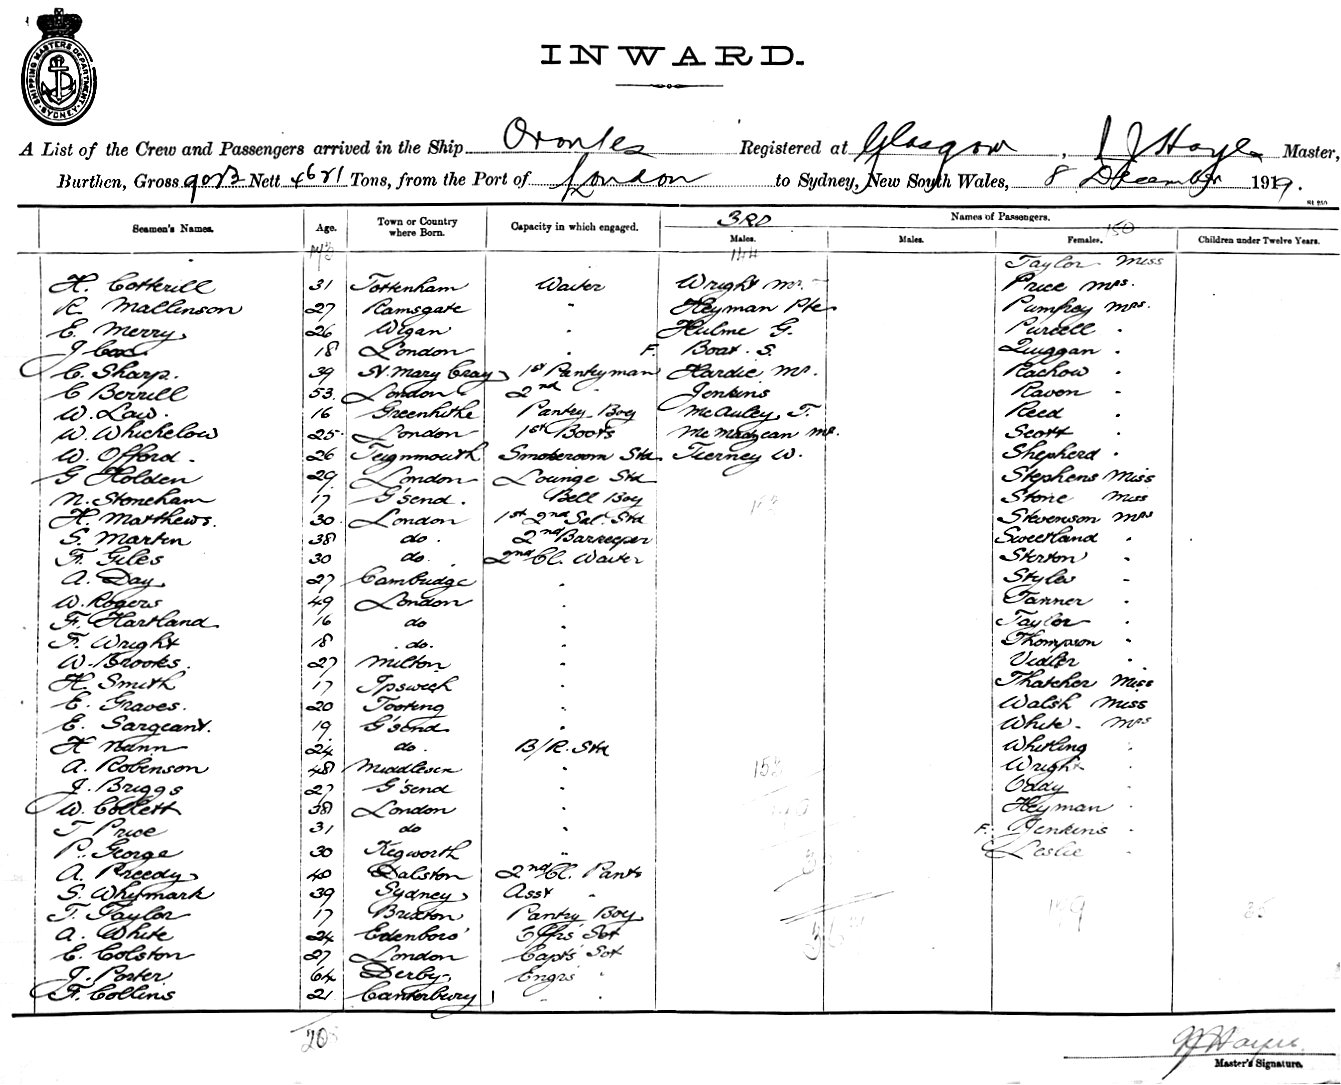 SHIPPING MASTERS DEPARTMENT SYDNEY
INWARD.
A List of the Crew and Passengers arrived in the Ship Orontes Registered at Glasgow, Master,
Burthen, Gross Nett Tons, from the Port of London to Sydney, New South Wales, 8 December 1919.
3RD Names of Passengers. 150
Seamen's Names. Age. Town or Country where Born. Capacity in which engaged. Males. Males. Females. Children under Twelve Years.
144 Taylor Miss
H. Cotterill 31 Tottenham Waiter Wright Mr. Price Mrs.
R. Mallinson 27 Ramsgate " Heyman Pte Pumfrey Mrs.
E. Merry 26 Wigan " Hulme G. Purcell "
J. Cox 18 London " F. Boat. S. Quiggan "
C. Sharp. 39 St. Mary Cray 1st Pantryman Hardie Mr. Rachow "
C Berrill 53. London 2nd " Jenkins Raven "
W. Law. 16 Greenhithe Pantry Boy McAuley T. Reed "
W. Whichelow 25 London 1st Boots Scott "
W. Offord. 26 Teignmouth Smokeroom Std Tierney W. Shepherd "
G Holden 29 London Lounge Std Stephens Miss
N. Stoneham 17 G'send. Bell Boy Stone Miss
H. Matthews. 30 London 1st 2nd Sal. Std Stevenson Mrs
S. Martin 38 do. 2nd Barkeeper Sweetland "
F. Giles 30 do. 2nd Cl. Waiter "
A. Day 27 Cambridge " Styles "
W. Rogers 49 London " Tanner "
F. Hartland 16 do " Taylor "
F. Wright 18 do. " Thompson "
W. Brooks. 27 Milton " Vidler "
H. Smith 17 Ipswich " Thatcher Miss
E. Graves. 20 Tooting " Walsh Miss
E. Sargeant. 19 G'send " White Mrs
H Nunn 24 do. B/R. Std Whitling "
A. Robinson 48 Middlesex " Wright "
J. Briggs 27 G'send " Eddy "
W. Collett 38 London " Heyman "
T Price 31 do " F. Jenkins "
P. George 30 Kegworth " Leslie "
A. Preedy 40 Dalston 2nd Cl. Pants
S. Whymark 39 Sydney Asst "
T. Taylor 17 Brixton Pantry Boy
A. White 24 Edenboro' Offrs' Svt
E. Colston 27 London Capts' Svt
J. Porter 64 Derby Engrs "
F. Collins 21 Canterbury " "
Master's Signature.